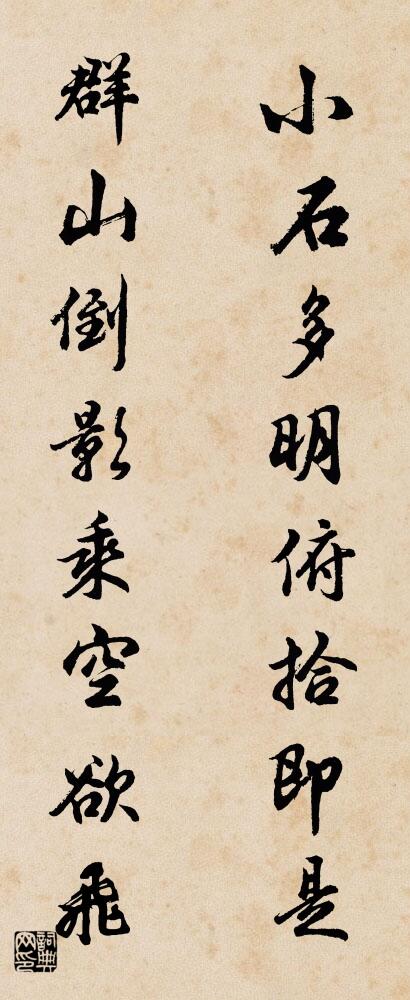 小石多明俯拾即是
群山倒影乘空欲飛
詞典網印